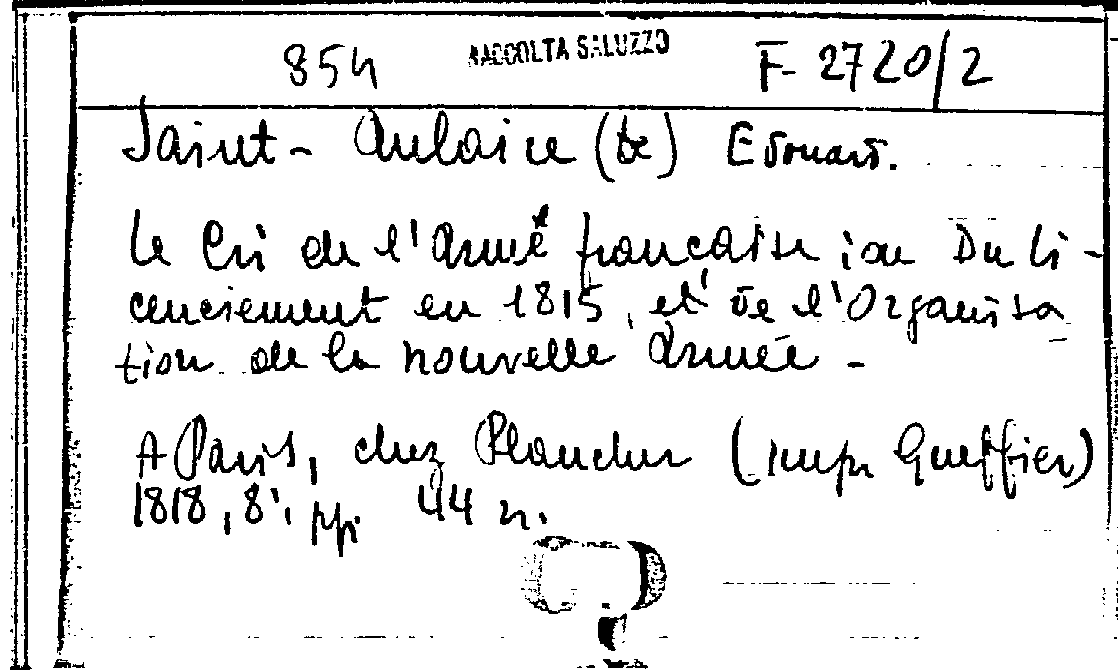 854 RACCOLTA SALUZZO F- 2720/2
Saint-Aulaire (de) Edouard.
Le Cri de l'Armée française; ou Du li-
cenciement en 1815, et de l'Organisa
tion de la nouvelle Armée -
A Paris, chez Plancher (impr Gueffier)
1818, 8', pp. 44 n.